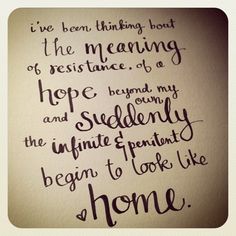 i've been thinking bout
the meaning
of resistance. of a
hope beyond my
own
and suddenly
the infinite & penitent
begin to look like
home.